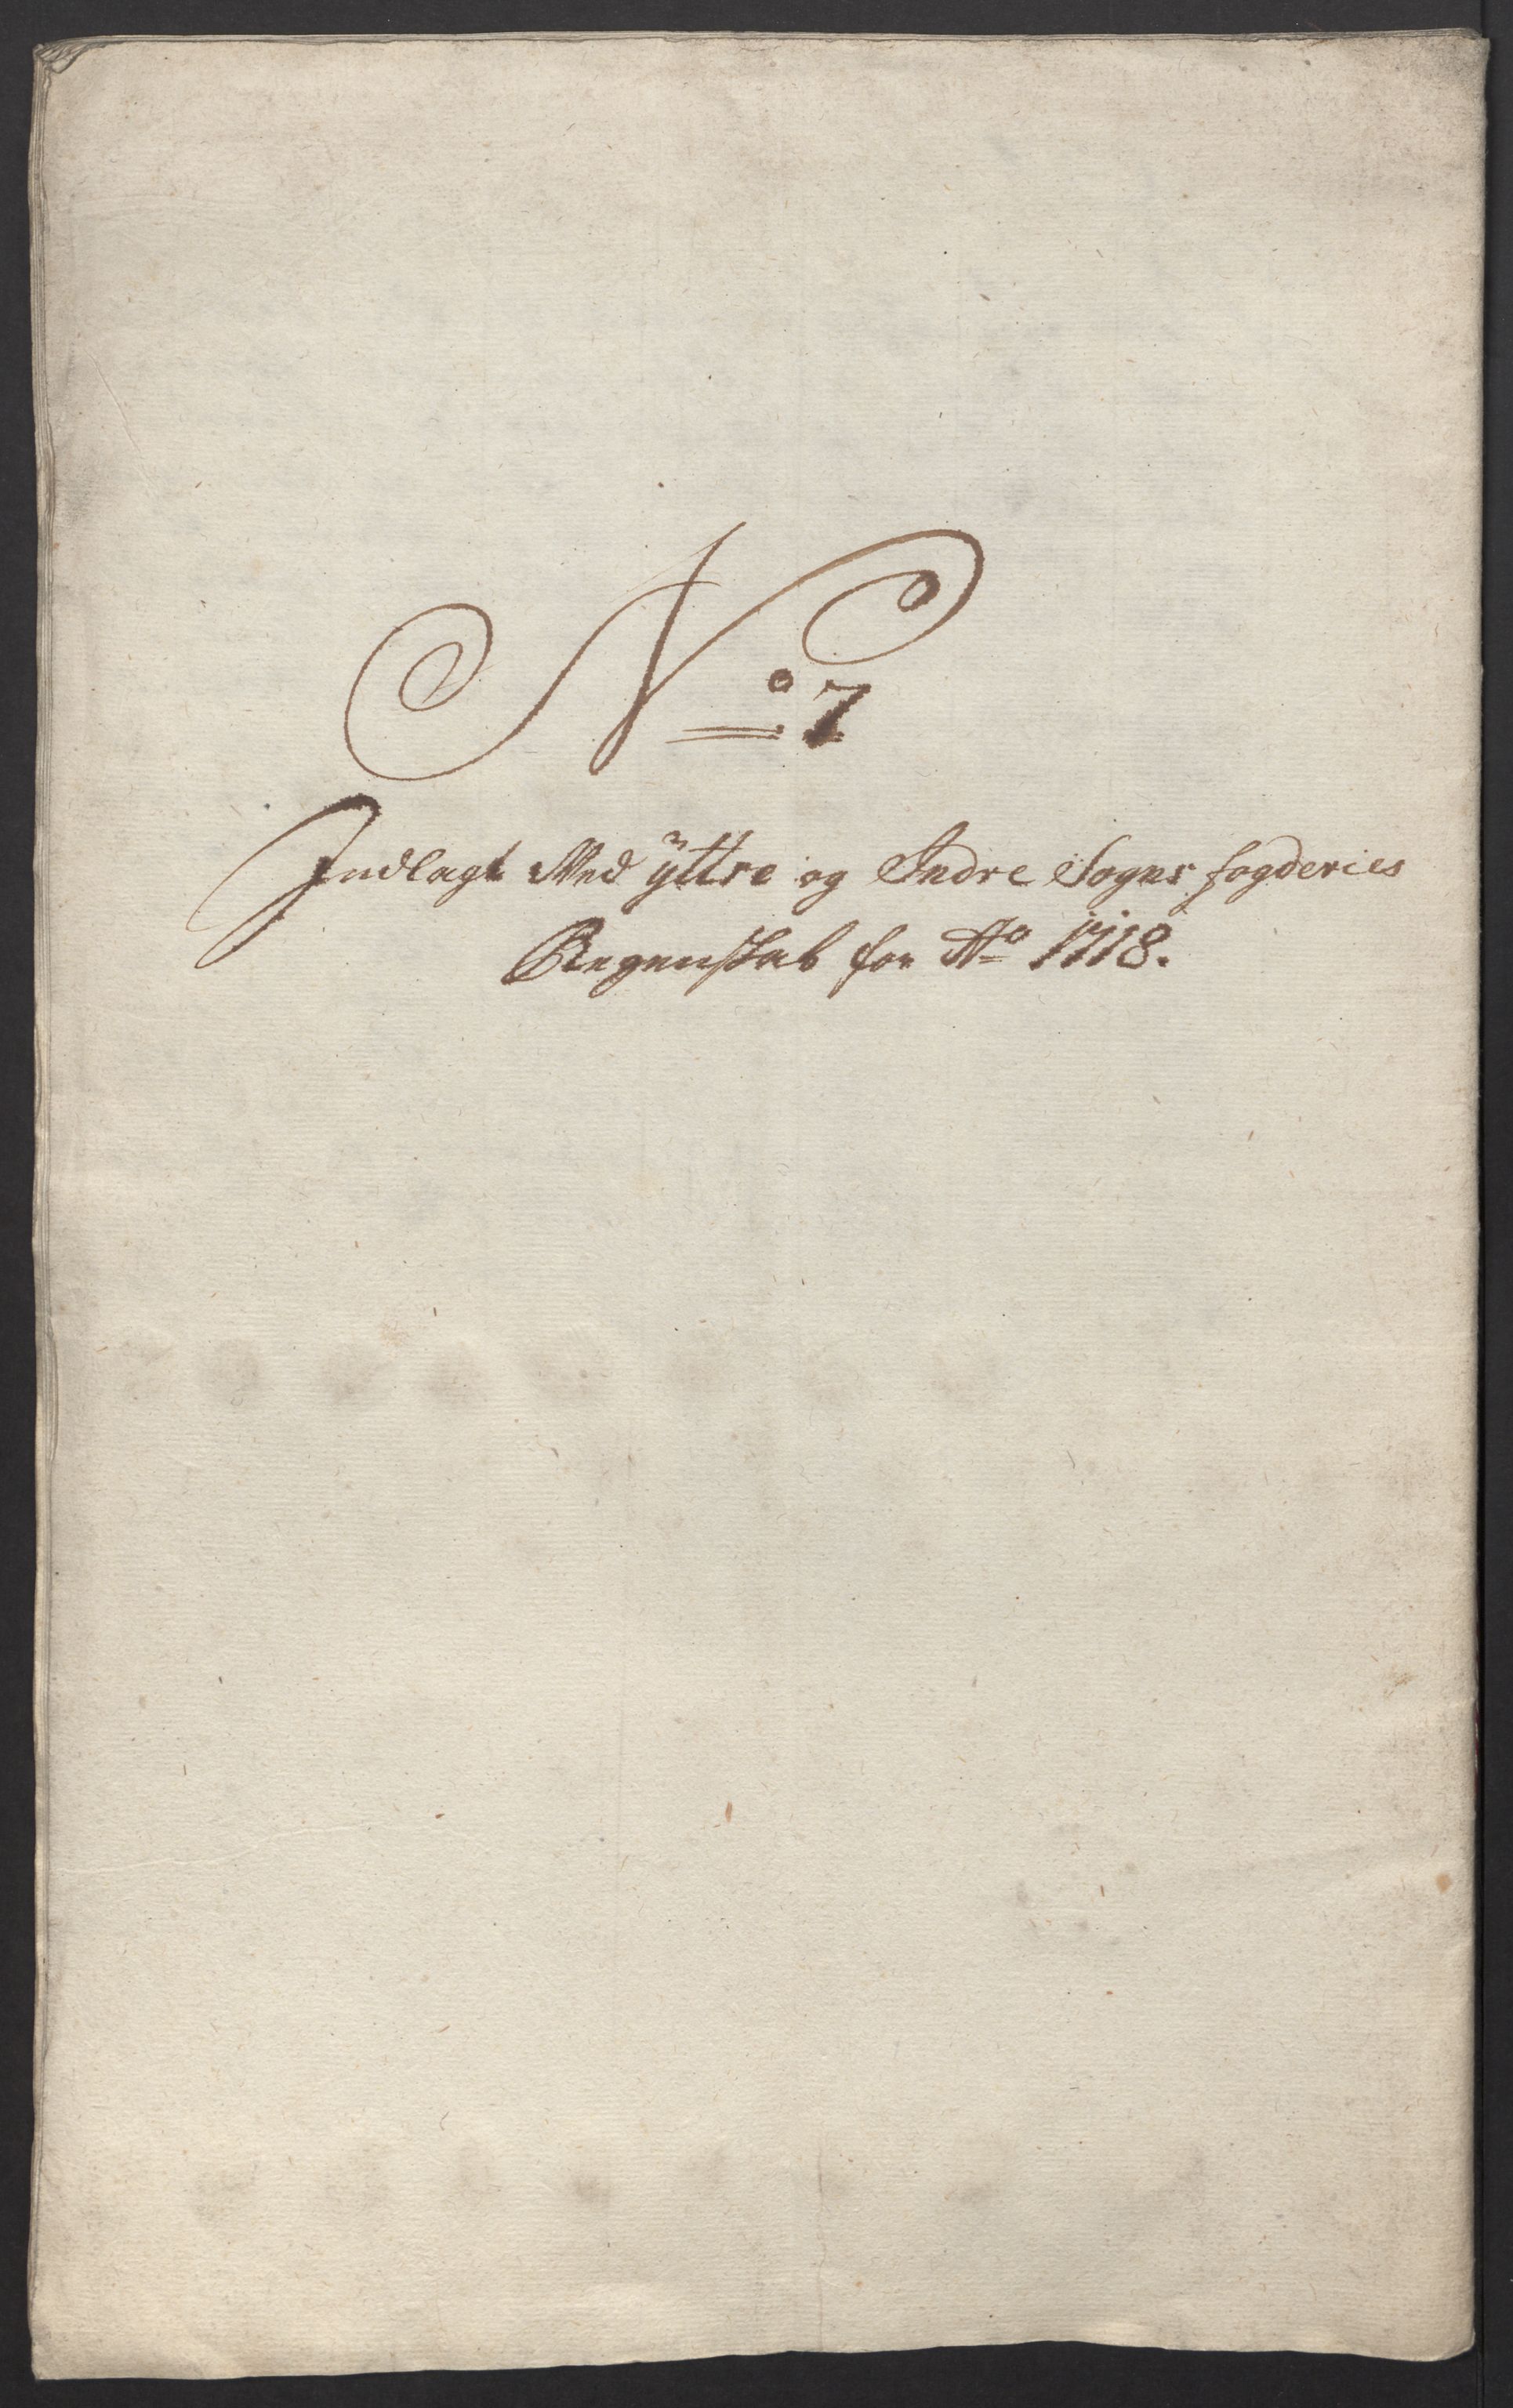 No: 7
Indlagt Med ÿttre og Indre Sogns fogderies
Regenskab for Ao 1718.